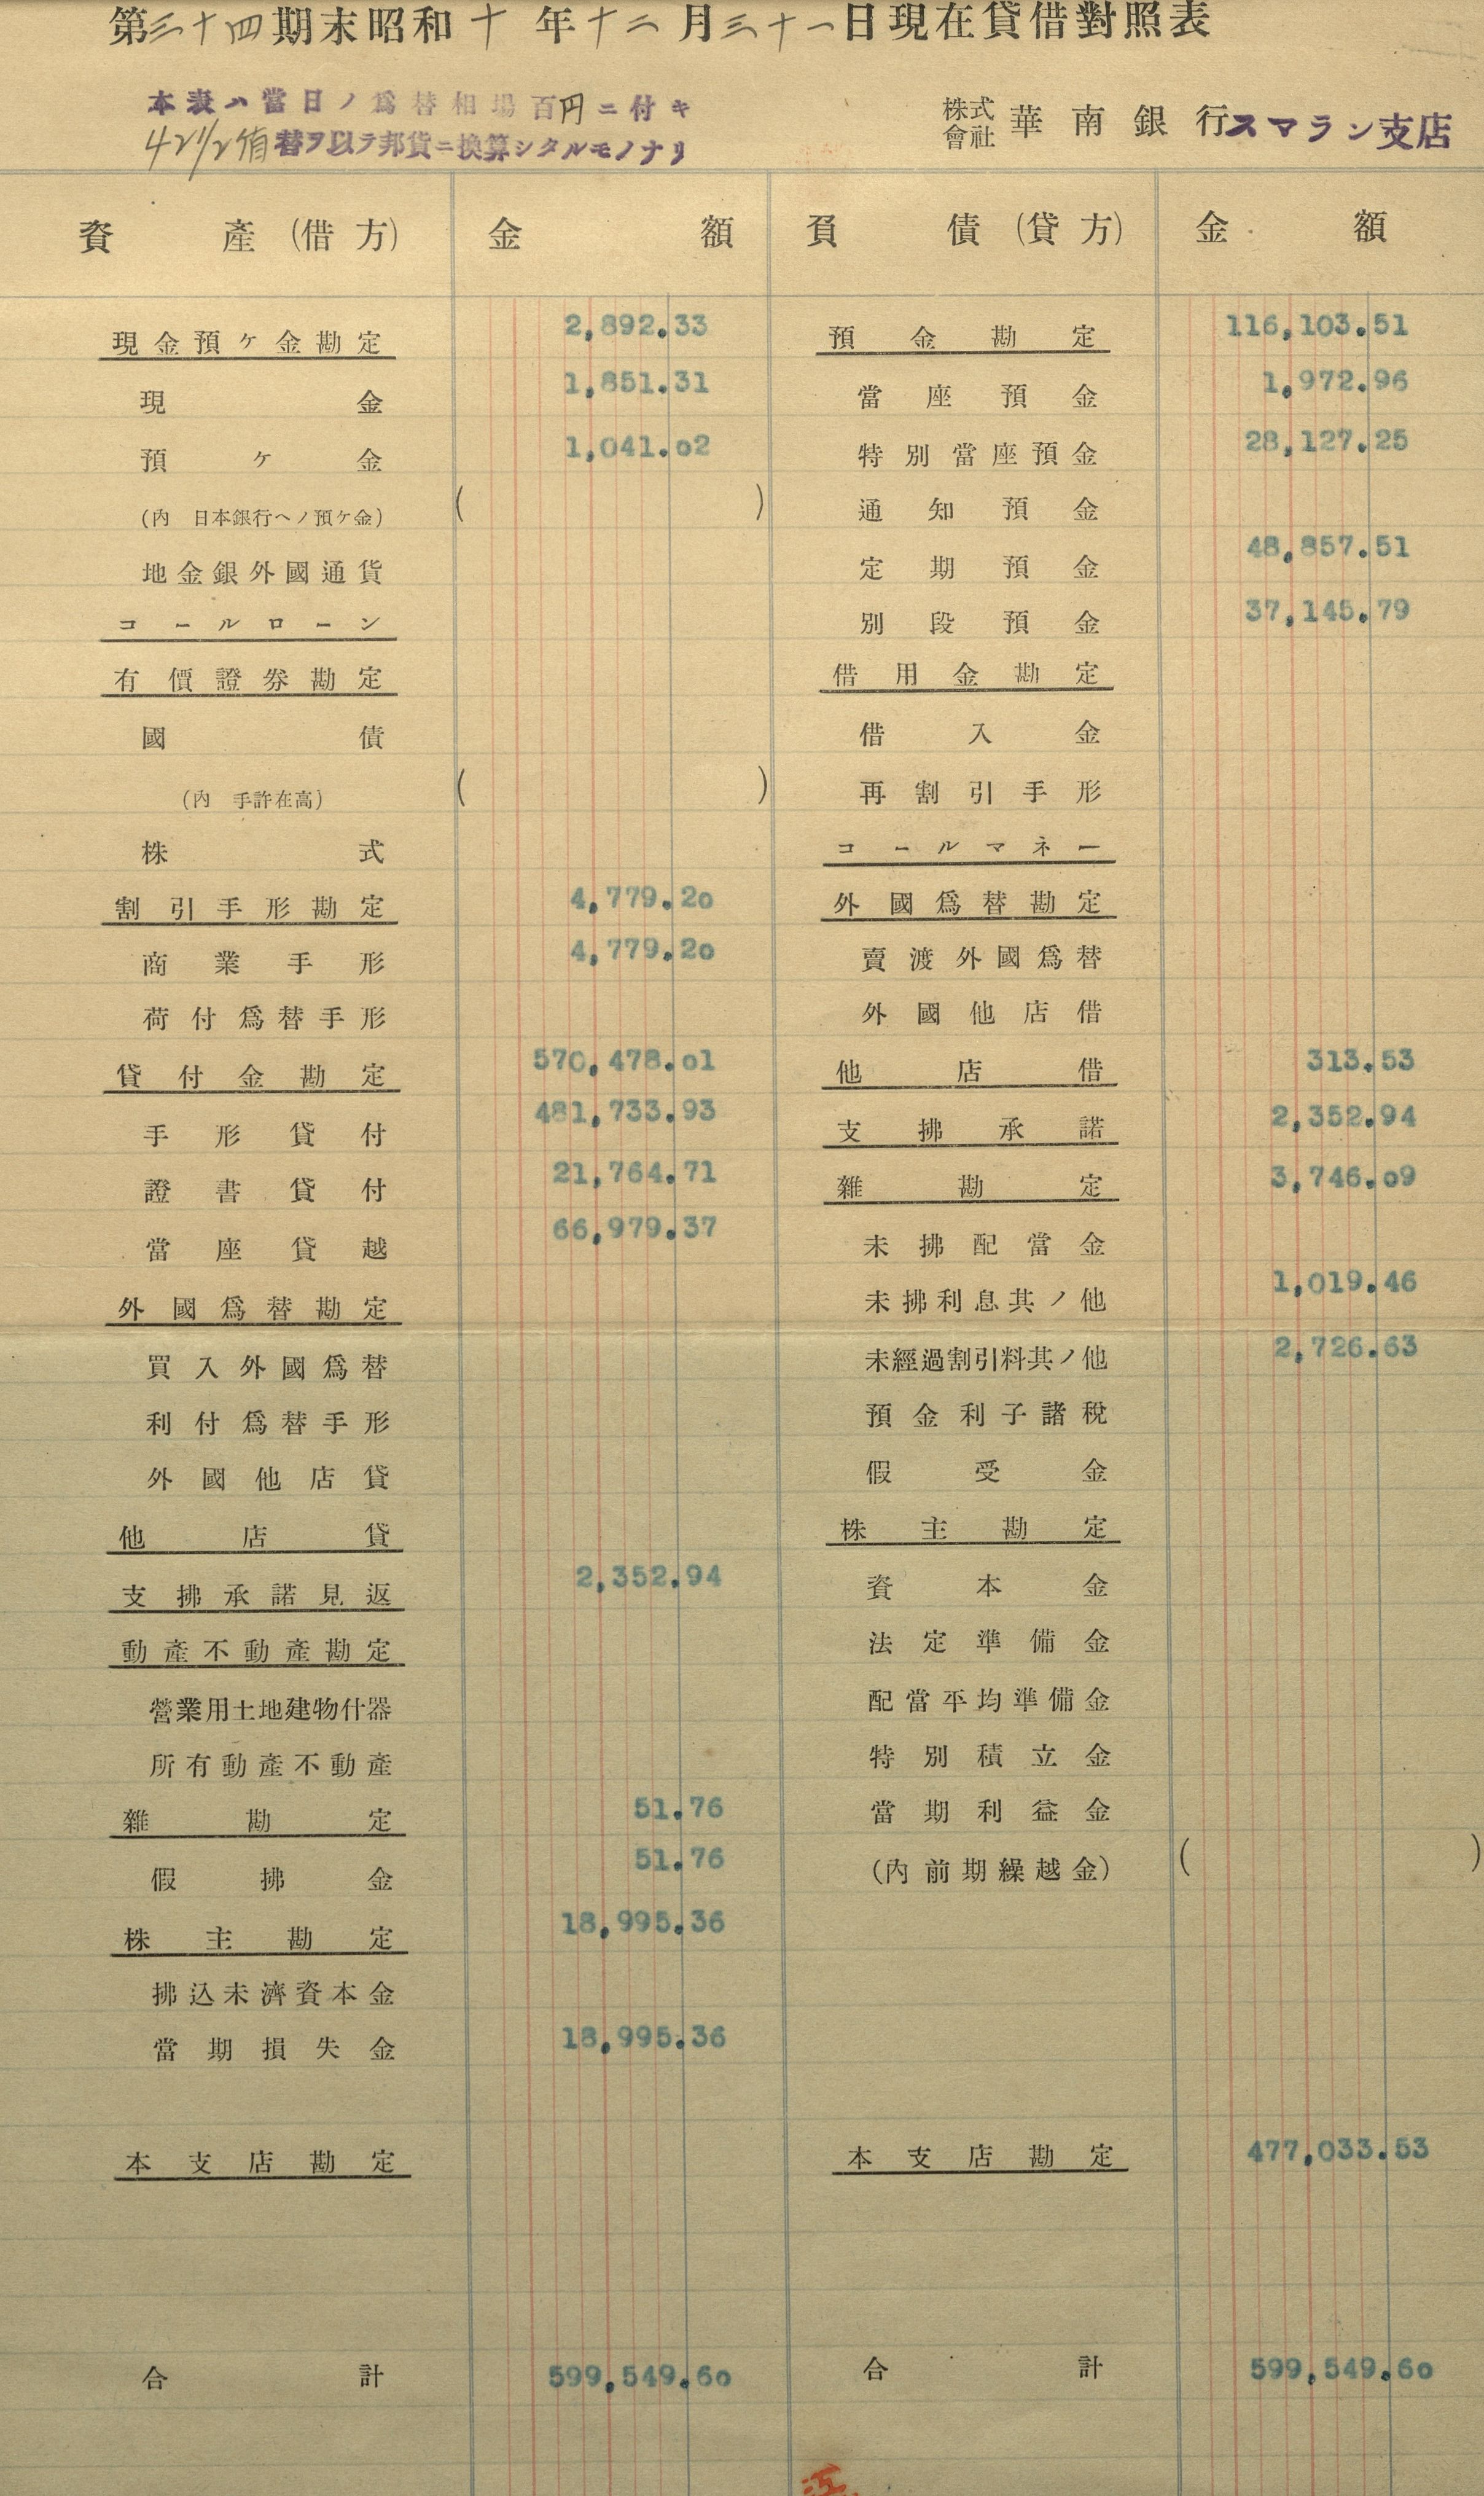 第三十四期末昭和十年十二月三十一日現在貸借對照表
本表ハ當日ノ爲替相場百円ニ付キ
42 1/2 替ヲ以テ邦貨ニ換算シタルモノナリ
株式會社 華南銀行スマラン支店
資產(借方) 金額 負債(貸方) 金額
現金預ケ金勘定 2,892.33 預金勘定 116,103.51
現金 1,851.31 當座預金 1,972.96
預ケ金 1,041.02 特別當座預金 28,127.25
(內 日本銀行ヘノ預ケ金) ( ) 通知預金
地金銀外國通貨 定期預金 48,857.51
コールローン 別段預金 37,145.79
有價證券勘定 借用金勘定
國債 借入金
(內 手許在高) ( ) 再割引手形
株式 コールマネー
割引手形勘定 4,779.20 外國爲替勘定
商業手形 4,779.20 賣渡外國爲替
荷付爲替手形 外國他店借
貸付金勘定 570,478.01 他店借 313.53
手形貸付 481,733.93 支拂承諾 2,352.94
證書貸付 21,764.71 雜勘定 3,746.09
當座貸越 66,979.37 未拂配當金
外國爲替勘定 未拂利息其ノ他 1,019.46
買入外國爲替 未經過割引料其ノ他 2,726.63
利付爲替手形 預金利子諸稅
外國他店貸 假受金
他店貸 株主勘定
支拂承諾見返 2,352.94 資本金
動產不動產勘定 法定準備金
營業用土地建物什器 配當平均準備金
所有動產不動產 特別積立金
雜勘定 51.76 當期利益金
假拂金 51.76 (內前期繰越金) ( )
株主勘定 18,995.36
拂込未濟資本金
當期損失金 18,995.36
本支店勘定 本支店勘定 477,033.53
合計 599,549.60 合計 599,549.60